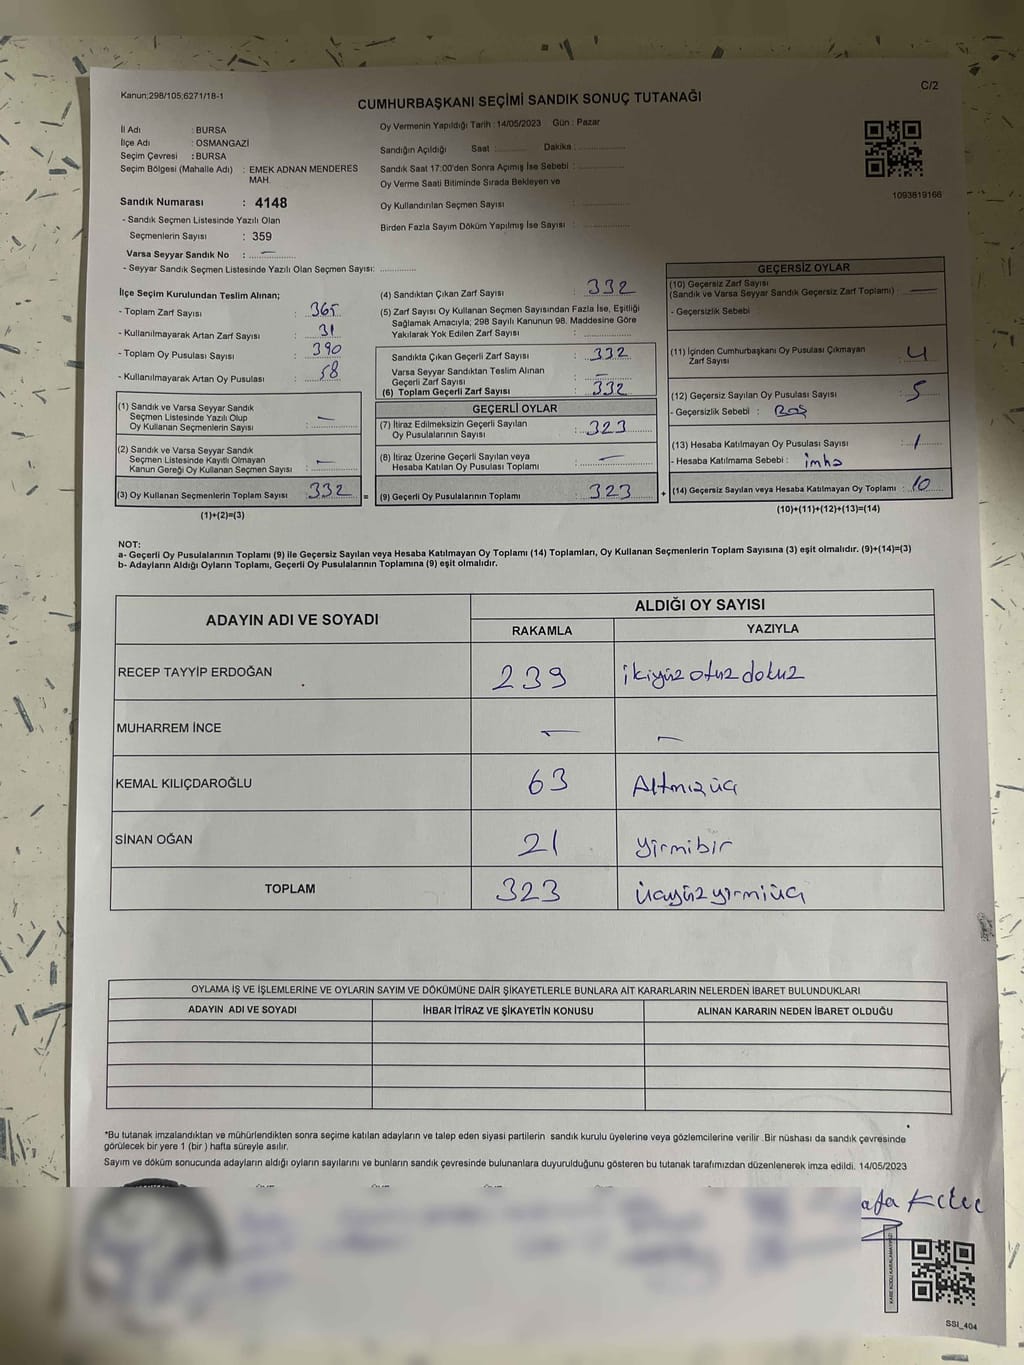 Kanun;298/105;6271/18-1
C/2
CUMHURBAŞKANI SEÇİMİ SANDIK SONUÇ TUTANAĞI
İl Adı : BURSA
İlçe Adı : OSMANGAZİ
Seçim Çevresi : BURSA
Seçim Bölgesi (Mahalle Adı) : EMEK ADNAN MENDERES
MAH.
Sandık Numarası : 4148
- Sandık Seçmen Listesinde Yazılı Olan
Seçmenlerin Sayısı : 359
Varsa Seyyar Sandık No : —
- Seyyar Sandık Seçmen Listesinde Yazılı Olan Seçmen Sayısı: ............
Oy Vermenin Yapıldığı Tarih : 14/05/2023 Gün : Pazar
Sandığın Açıldığı Saat :............... Dakika :...............
Sandık Saat 17:00'den Sonra Açımış İse Sebebi : ...............
Oy Verme Saati Bitiminde Sırada Bekleyen ve
Oy Kullandırılan Seçmen Sayısı : ...............
Birden Fazla Sayım Döküm Yapılmış İse Sayısı : ...............
1093819166
İlçe Seçim Kurulundan Teslim Alınan;
- Toplam Zarf Sayısı : 365
- Kullanılmayarak Artan Zarf Sayısı : 31
- Toplam Oy Pusulası Sayısı : 390
- Kullanılmayarak Artan Oy Pusulası : 58
(1) Sandık ve Varsa Seyyar Sandık
Seçmen Listesinde Yazılı Olup
Oy Kullanan Seçmenlerin Sayısı : —
(2) Sandık ve Varsa Seyyar Sandık
Seçmen Listesinde Kayıtlı Olmayan
Kanun Gereği Oy Kullanan Seçmen Sayısı : —
(3) Oy Kullanan Seçmenlerin Toplam Sayısı : 332 =
(1)+(2)=(3)
(4) Sandıktan Çıkan Zarf Sayısı : 332
(5) Zarf Sayısı Oy Kullanan Seçmen Sayısından Fazla İse, Eşitliği
Sağlamak Amacıyla; 298 Sayılı Kanunun 98. Maddesine Göre
Yakılarak Yok Edilen Zarf Sayısı : ...............
Sandıkta Çıkan Geçerli Zarf Sayısı : 332
Varsa Seyyar Sandıktan Teslim Alınan
Geçerli Zarf Sayısı : —
(6) Toplam Geçerli Zarf Sayısı : 332
GEÇERLİ OYLAR
(7) İtiraz Edilmeksizin Geçerli Sayılan
Oy Pusulalarının Sayısı : 323
(8) İtiraz Üzerine Geçerli Sayılan veya
Hesaba Katılan Oy Pusulası Toplamı : —
(9) Geçerli Oy Pusulalarının Toplamı : 323 +
GEÇERSİZ OYLAR
(10) Geçersiz Zarf Sayısı
(Sandık ve Varsa Seyyar Sandık Geçersiz Zarf Toplamı) : —
- Geçersizlik Sebebi :
(11) İçinden Cumhurbaşkanı Oy Pusulası Çıkmayan
Zarf Sayısı : 4
(12) Geçersiz Sayılan Oy Pusulası Sayısı : 5
- Geçersizlik Sebebi : Boş
(13) Hesaba Katılmayan Oy Pusulası Sayısı : 1
- Hesaba Katılmama Sebebi : imha
(14) Geçersiz Sayılan veya Hesaba Katılmayan Oy Toplamı : 10
(10)+(11)+(12)+(13)=(14)
NOT:
a- Geçerli Oy Pusulalarının Toplamı (9) ile Geçersiz Sayılan veya Hesaba Katılmayan Oy Toplamı (14) Toplamları, Oy Kullanan Seçmenlerin Toplam Sayısına (3) eşit olmalıdır. (9)+(14)=(3)
b- Adayların Aldığı Oyların Toplamı, Geçerli Oy Pusulalarının Toplamına (9) eşit olmalıdır.
ADAYIN ADI VE SOYADI ALDIĞI OY SAYISI
RAKAMLA YAZIYLA
RECEP TAYYİP ERDOĞAN 239 ikiyüz otuz dokuz
MUHARREM İNCE — —
KEMAL KILIÇDAROĞLU 63 Altmışüç
SİNAN OĞAN 21 yirmibir
TOPLAM 323 üçyüz yirmiüç
OYLAMA İŞ VE İŞLEMLERİNE VE OYLARIN SAYIM VE DÖKÜMÜNE DAİR ŞİKAYETLERLE BUNLARA AİT KARARLARIN NELERDEN İBARET BULUNDUKLARI
ADAYIN ADI VE SOYADI İHBAR İTİRAZ VE ŞİKAYETİN KONUSU ALINAN KARARIN NEDEN İBARET OLDUĞU
*Bu tutanak imzalandıktan ve mühürlendikten sonra seçime katılan adayların ve talep eden siyasi partilerin sandık kurulu üyelerine veya gözlemcilerine verilir .Bir nüshası da sandık çevresinde
görülecek bir yere 1 (bir ) hafta süreyle asılır.
Sayım ve döküm sonucunda adayların aldığı oyların sayılarını ve bunların sandık çevresinde bulunanlara duyurulduğunu gösteren bu tutanak tarafımızdan düzenlenerek imza edildi. 14/05/2023
KARE KODU KARALAMAYINIZ!
SSI_404